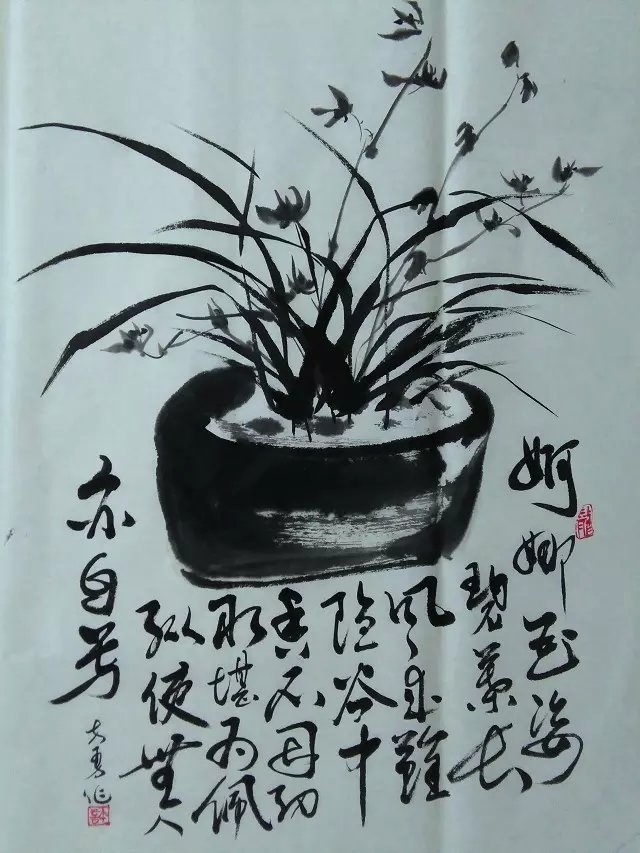 婀娜花姿
碧葉长
风来難
隐谷中
香不因纫
取堪为佩
纵使無人
亦自芳
作